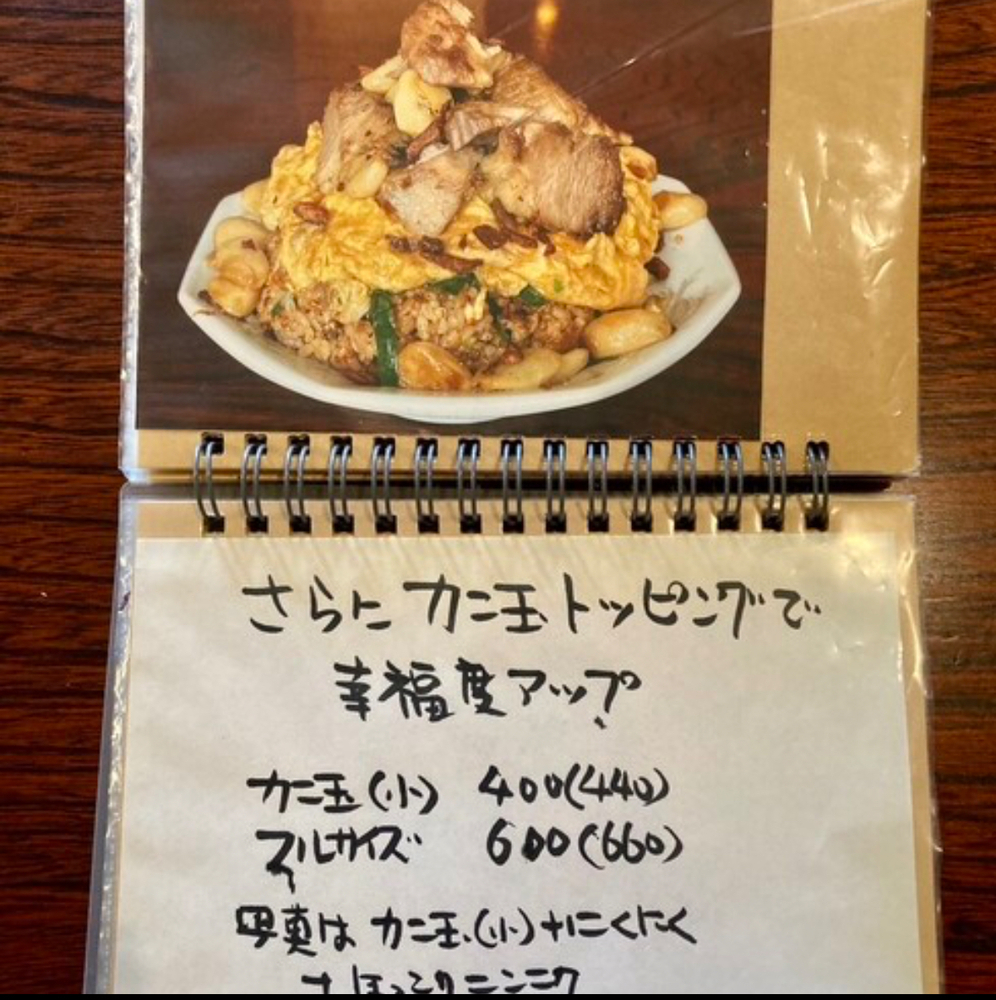 さらに カニ玉トッピングで
幸福度アップ
カニ玉(小) 400(440)
フルサイズ 600(660)
写真は カニ玉(小)+にくにく
ほっこりニンニク